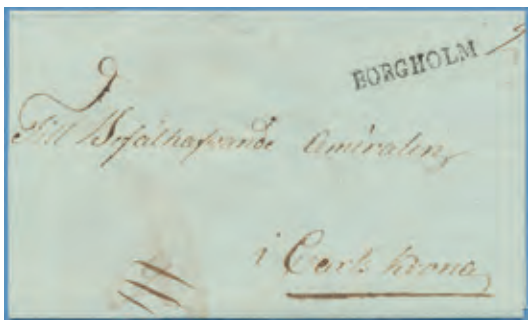 BORGHOLM
Till Befälhafvande Amiralen
i Carlskrona